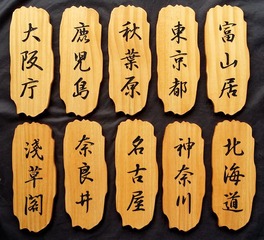 富山居
東京都
秋葉原
鹿児島
大阪庁
北海道
神奈川
名古屋
奈良井
淺草閣